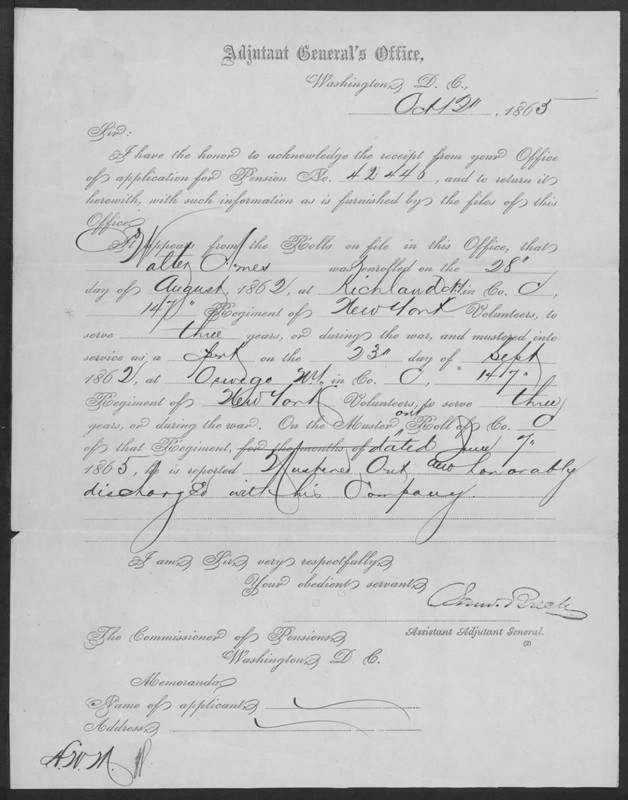 Adjutant General's Office,
Washington, D. C.,
Oct 12", 1865
Sir:
I have the honor to acknowledge the receipt from your Office
of application for Pension No. 42440, and to return it
herewith, with such information as is furnished by the files of this
Office.
It appears from the Rolls on file in this Office, that
Walter Ames was enrolled on the 28"
day of August, 1862, at Richland in Co. C,
147" Regiment of New York Volunteers, to
serve three years, or during the war, and mustered into
service as a on the 23" day of Sept
1862, at Oswego N.Y. in Co. C, 147"
Regiment of New York Volunteers, to serve three
years, or during the war. On the Muster out Roll of Co. C
of that Regiment, for the months of dated June 7"
1865, he is reported Mustered Out and honorably
discharged with his Company.
I am, Sir, very respectfully,
Your obedient servant,
Saml. Breck
Assistant Adjutant General.
(2)
The Commissioner of Pensions,
Washington, D C.
Memoranda:
Name of applicant,
Address,